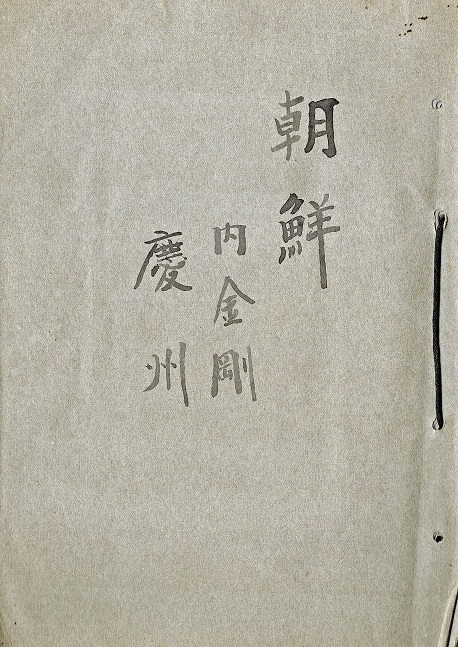 朝鮮
内金剛
慶州